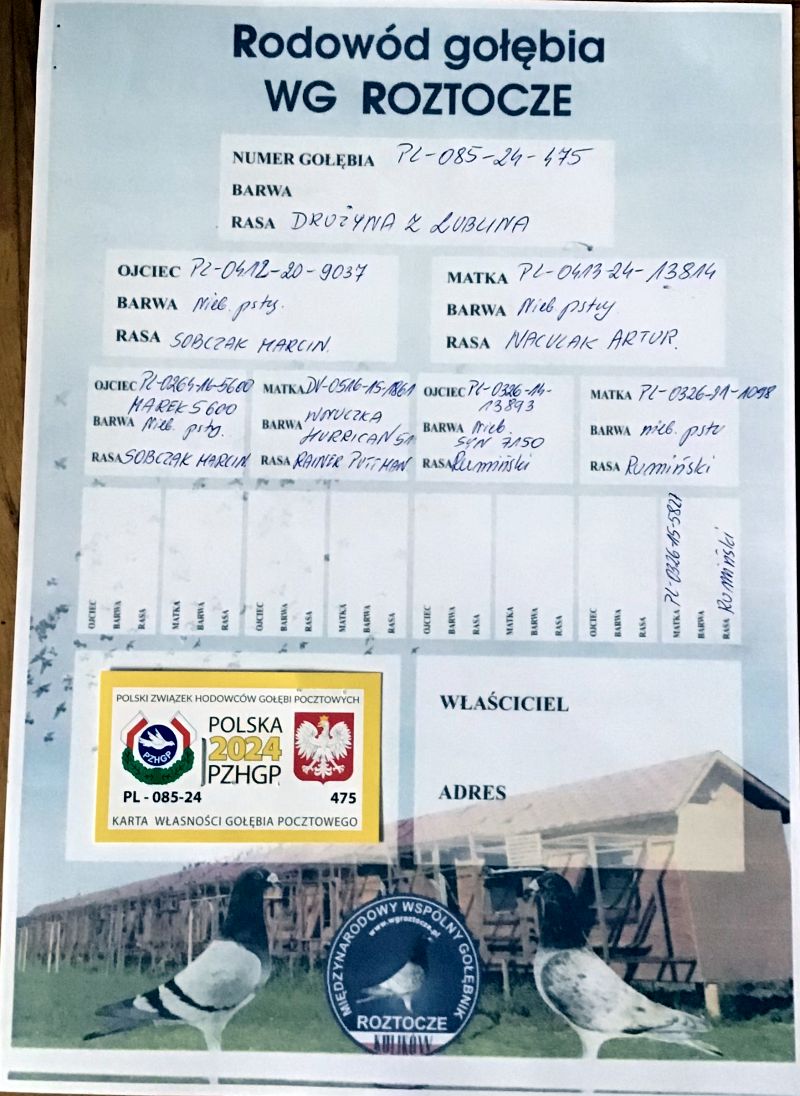 Rodowód gołębia
WG ROZTOCZE
NUMER GOŁĘBIA PL-085-24-475
BARWA
RASA DRUŻYNA Z LUBLINA
OJCIEC PL-0412-20-9037
BARWA Nieb. pstry.
RASA SOBCZAK MARCIN.
MATKA PL-0413-24-13814
BARWA Nieb pstry
RASA NACULAK ARTUR.
OJCIEC PL-0264-16-5600
MAREK 5600
BARWA Nieb. pstry.
RASA SOBCZAK MARCIN
MATKA DV-0516-15-1861
BARWA WNUCZKA
HURRICAN 51
RASA RAINER PUTTMAN
OJCIEC PL-0326-14-
13893
BARWA Nieb.
SYN 7150
RASA Rumiński
MATKA PL-0326-21-1098
BARWA nieb. pstr
RASA Rumiński
OJCIEC
BARWA
RASA
MATKA
BARWA
RASA
OJCIEC
BARWA
RASA
MATKA
BARWA
RASA
OJCIEC
BARWA
RASA
MATKA
BARWA
RASA
OJCIEC
BARWA
RASA
MATKA PL-0326-15-5827
BARWA
RASA Rumiński
POLSKI ZWIĄZEK HODOWCÓW GOŁĘBI POCZTOWYCH
PZHGP
POLSKA
2024
PZHGP
PL - 085-24 475
KARTA WŁASNOŚCI GOŁĘBIA POCZTOWEGO
WŁAŚCICIEL
ADRES
MIĘDZYNARODOWY WSPÓLNY GOŁĘBNIK
www.wgroztocze.pl
ROZTOCZE
KULIKÓW